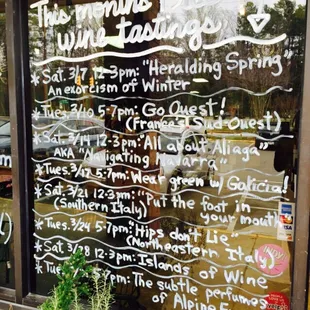 This month's
wine tastings
* Sat. 3/7 12-3pm: "Heralding Spring"
An exorcism of Winter
* Tues. 3/10 5-7pm: Go Ouest!
(France's Sud-Ouest)
* Sat. 3/14 12-3pm: "All about Aliaga"
AKA "Navigating Navarra"
* Tues. 3/17 5-7pm: Wear green w/ Galicia!
* Sat. 3/21 12-3pm: "Put the foot in
(Southern Italy) your mouth"
* Tues. 3/24 5-7pm: Hips don't Lie
(Northeastern Italy)
* Sat. 3/28 12-3pm: Islands of Wine
* Tues. 5-7pm: The subtle perfumes
of Alpine